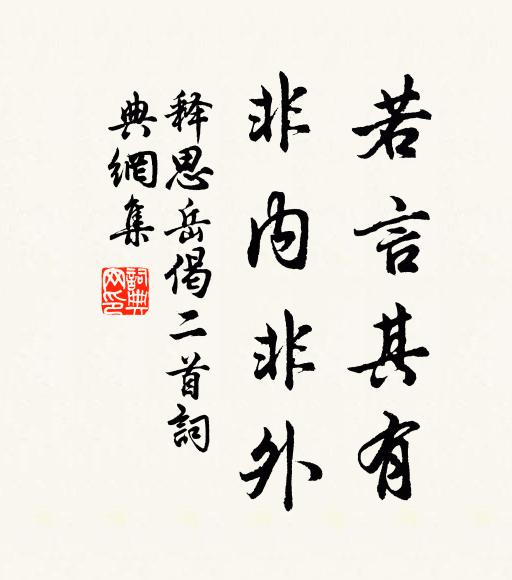 若言其有
非内非外
释思岳偈二首詞
典網集
詞典
网印